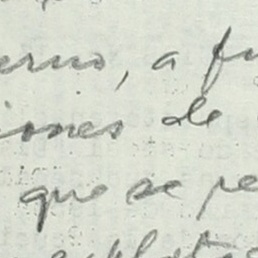 erno, a fu
iones de
que se pe